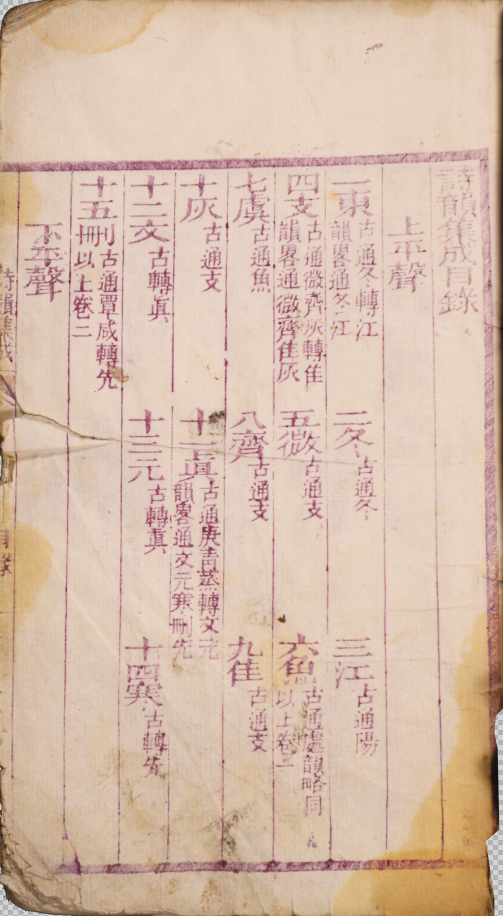 詩韻集成目錄
上平聲
一東 古通冬轉江 韻畧通冬江
二冬 古通冬
三江 古通陽
四支 古通微齊灰轉佳 韻畧通微齊佳灰
五微 古通支
六魚 古通虞韻略同 以上卷一
七虞 古通魚
八齊 古通支
九佳 古通支
十灰 古通支
十一真 古通庚青蒸轉文元 韻畧通文元寒刪先
十二文 古轉真
十三元 古轉真
十四寒 古轉先
十五刪 古通覃咸轉先 以上卷二
下平聲
詩韻集成
目錄